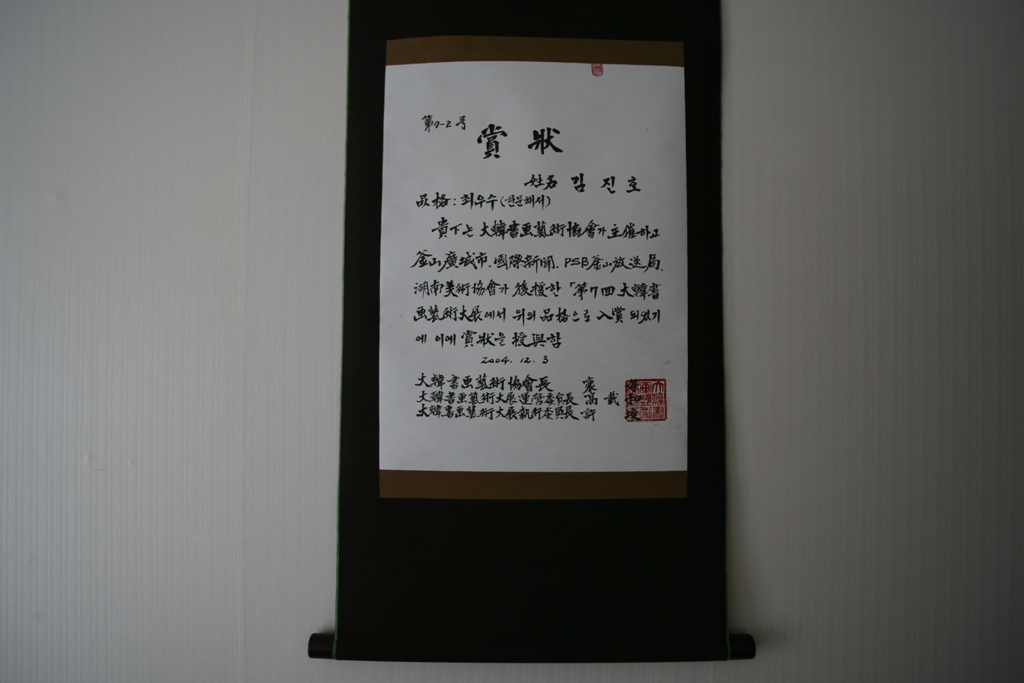 第7-2号
賞狀
姓名 김진호
品格: 최우수(한문해서)
貴下는 大韓書画藝術協會가 主催하고
釜山廣域市. 國際新聞. PSB釜山放送局.
湖南美術協會가 後援한 「第7回 大韓書
画藝術大展에서 위의 品格으로 入賞 되었기
에 이에 賞狀을 授與함
2004. 12. 3
大韓書画藝術協會長 裵
大韓書画藝術大展運營委員長 高 載
大韓書画藝術大展執行委員長 許